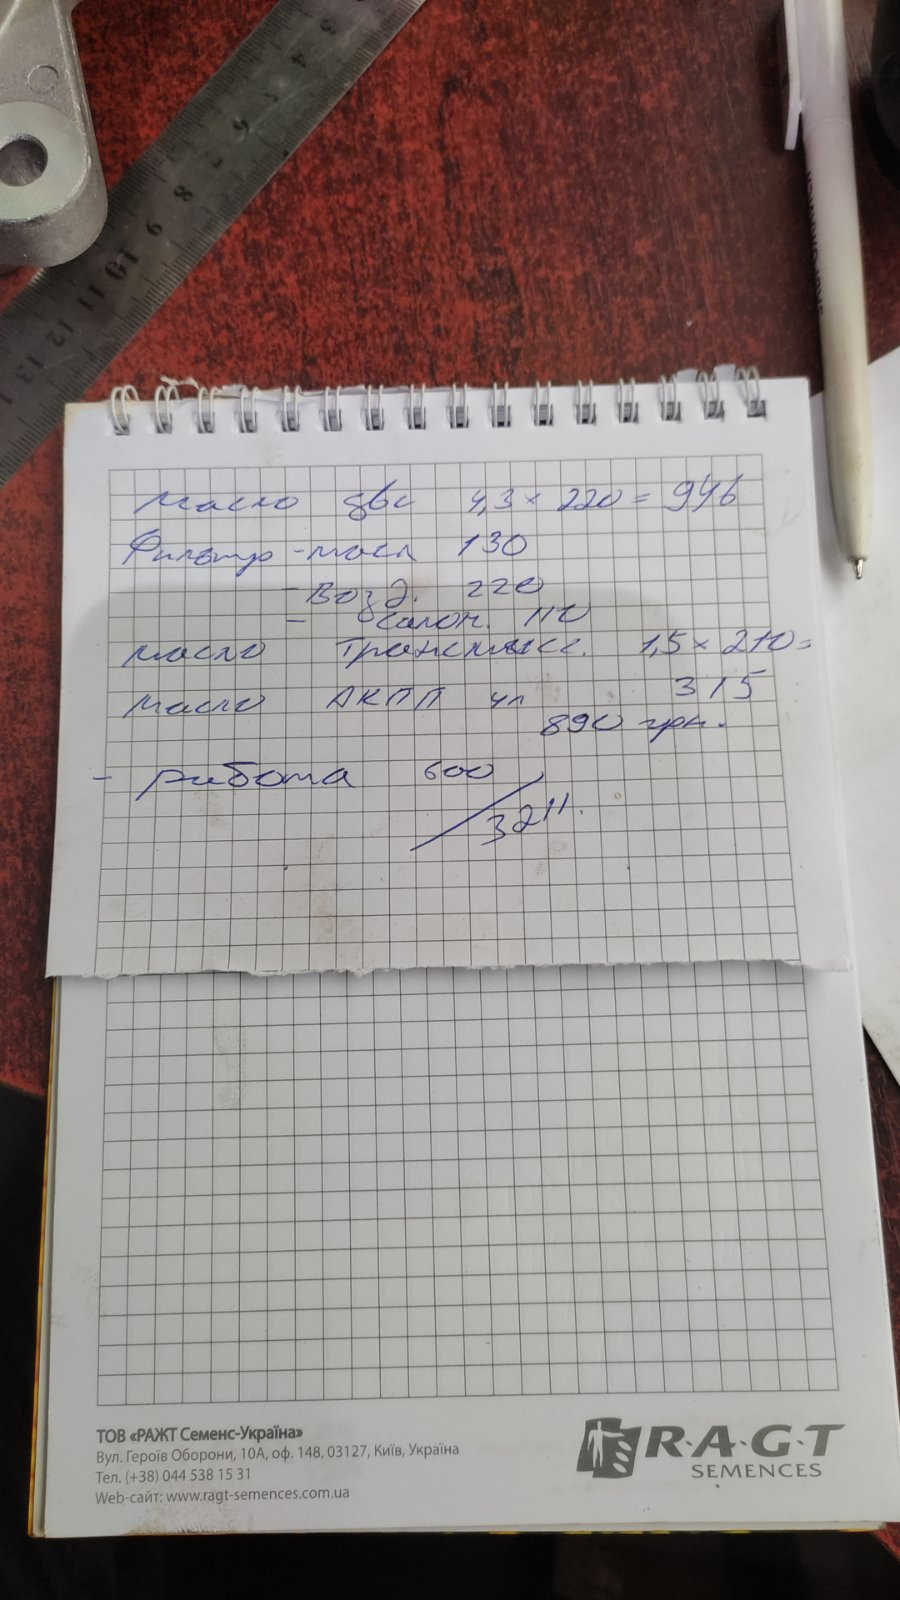 Масло двс 4,3 × 220 = 946
Фильтр - масл 130
- Возд. 220
- салон. 110
Масло Трансмисс. 1,5 × 210 =
315
Масло АКПП 4л
890 грн.
- работа 600
3211.
ТОВ «РАЖТ Семенс-Україна»
Вул. Героїв Оборони, 10А, оф. 148, 03127, Київ, Україна
Тел. (+38) 044 538 15 31
Web-сайт: www.ragt-semences.com.ua
R·A·G·T
SEMENCES
3
4
5
6
7
8
9
10
11
12
13